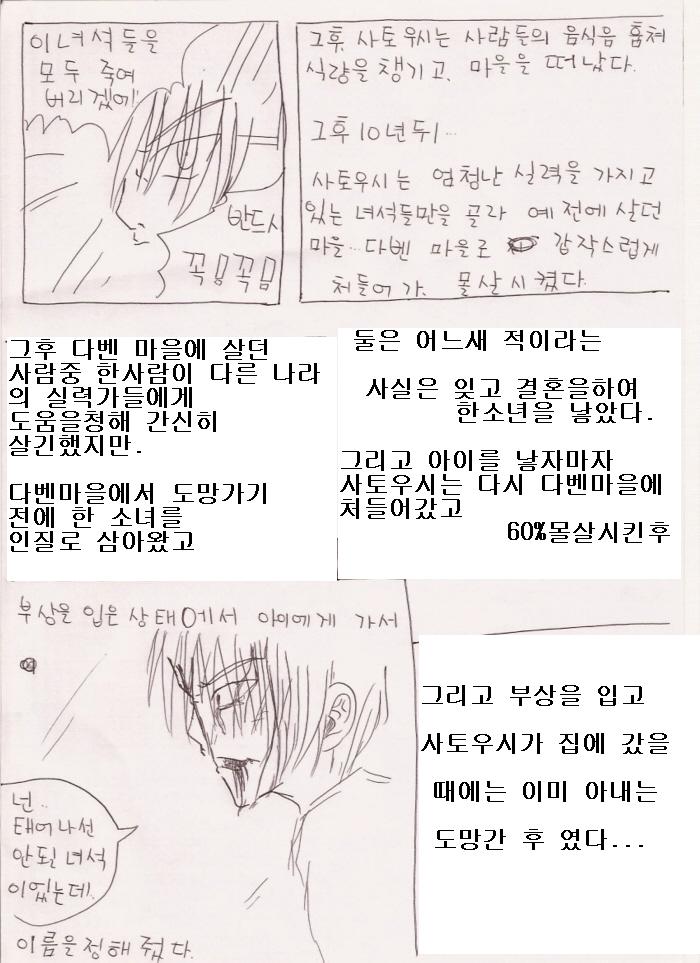 이녀석들을
모두 죽여
버리겠에!
반드시
꼭!꼭!꼭!
그후 사토우시는 사람들의 음식을 훔쳐
식량을 챙기고, 마을을 떠났다.
그후 10년뒤...
사토우시는 엄청난 실력을 가지고
있는 녀석들만을 골라 예전에 살던
마을...다벤 마을로 갑작스럽게
처들어가 몰살시켰다.
그후 다벤 마을에 살던
사람중 한사람이 다른 나라
의 실력가들에게
도움을청해 간신히
살긴했지만.
다벤마을에서 도망가기
전에 한 소녀를
인질로 삼아왔고
둘은 어느새 적이라는
사실은 잊고 결혼을하여
한소년을 낳았다.
그리고 아이를 낳자마자
사토우시는 다시 다벤마을에
처들어갔고
60%몰살시킨후
부상을 입은 상태에서 아이에게 가서
넌..
태어나선
안된 녀석
이었는데.
이름을정해 줬다.
그리고 부상을 입고
사토우시가 집에 갔을
때에는 이미 아내는
도망간 후 였다...